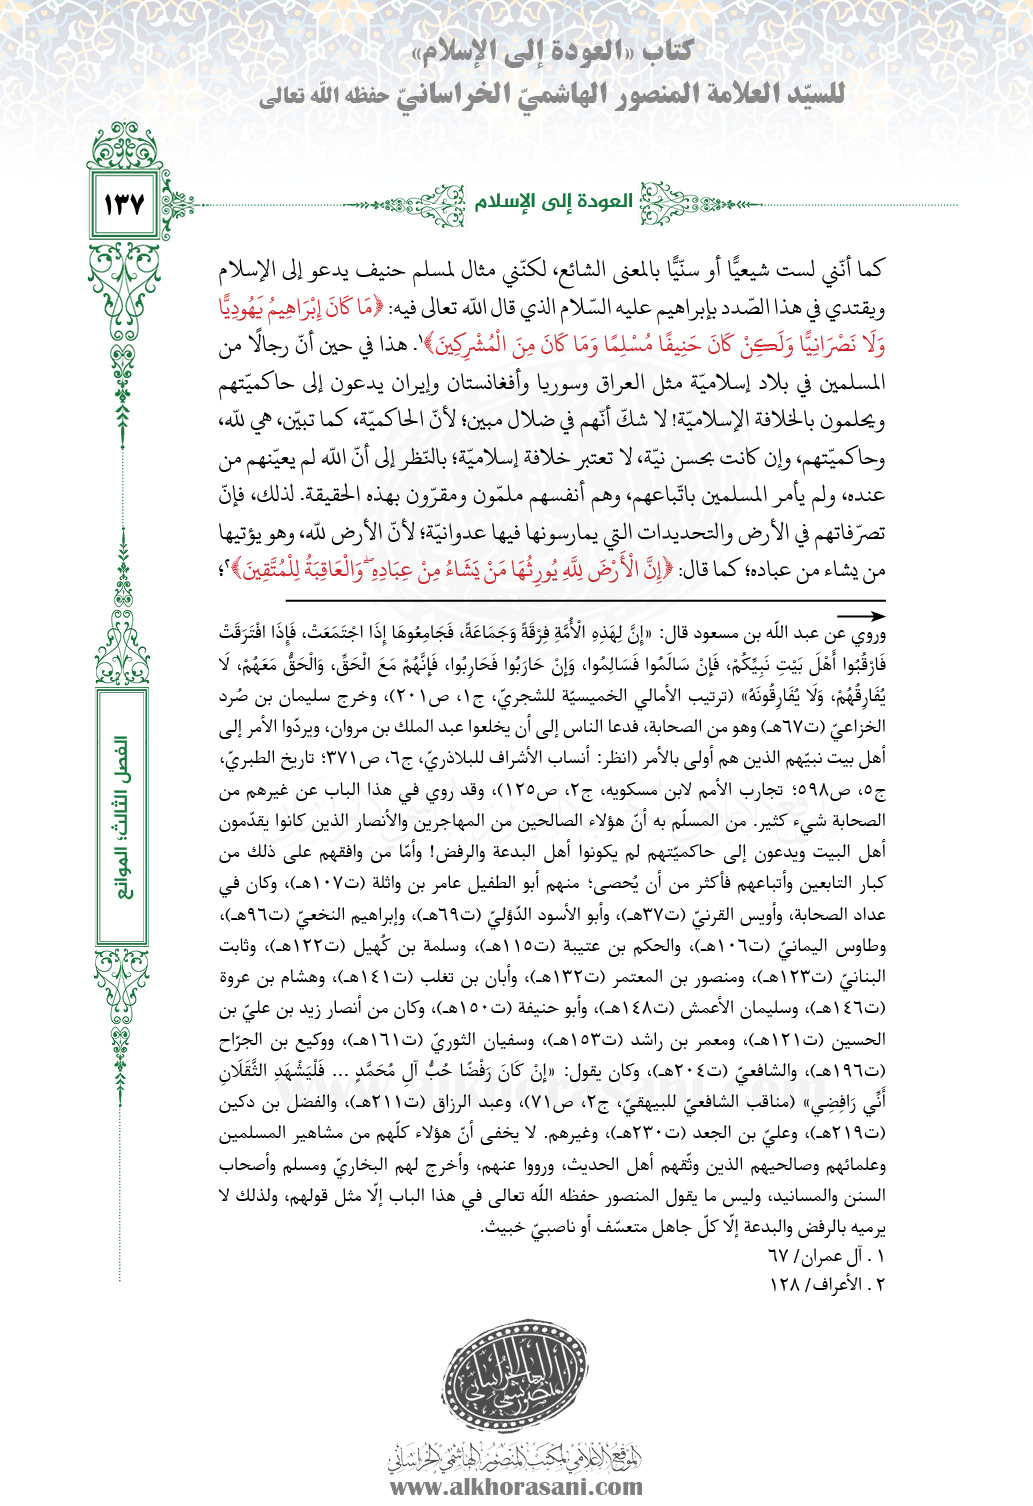 كتاب «العودة إلى الإسلام»
للسيّد العلامة المنصور الهاشميّ الخراسانيّ حفظه الله تعالى
١٣٧
العودة إلى الإسلام
كما أنّني لست شيعيًّا أو سنّيًّا بالمعنى الشائع، لكنّني مثال لمسلم حنيف يدعو إلى الإسلام
ويقتدي في هذا الصّدد بإبراهيم عليه السّلام الذي قال الله تعالى فيه: ﴿مَا كَانَ إِبْرَاهِيمُ يَهُودِيًّا
وَلَا نَصْرَانِيًّا وَلَكِنْ كَانَ حَنِيفًا مُسْلِمًا وَمَا كَانَ مِنَ الْمُشْرِكِينَ﴾١. هذا في حين أنّ رجالًا من
المسلمين في بلاد إسلاميّة مثل العراق وسوريا وأفغانستان وإيران يدعون إلى حاكميّتهم
ويحلمون بالخلافة الإسلاميّة! لا شكّ أنّهم في ضلال مبين؛ لأنّ الحاكميّة، كما تبيّن، هي لله،
وحاكميّتهم، وإن كانت بحسن نيّة، لا تعتبر خلافة إسلاميّة؛ بالنّظر إلى أنّ الله لم يعيّنهم من
عنده، ولم يأمر المسلمين باتّباعهم، وهم أنفسهم ملمّون ومقرّون بهذه الحقيقة. لذلك، فإنّ
تصرّفاتهم في الأرض والتحديدات التي يمارسونها فيها عدوانيّة؛ لأنّ الأرض لله، وهو يؤتيها
من يشاء من عباده؛ كما قال: ﴿إِنَّ الْأَرْضَ لِلَّهِ يُورِثُهَا مَنْ يَشَاءُ مِنْ عِبَادِهِ ۖ وَالْعَاقِبَةُ لِلْمُتَّقِينَ﴾٢؛
وروي عن عبد الله بن مسعود قال: «إِنَّ لِهَذِهِ الْأُمَّةِ فِرْقَةً وَجَمَاعَةً، فَجَامِعُوهَا إِذَا اجْتَمَعَتْ، فَإِذَا افْتَرَقَتْ
فَارْقُبُوا أَهْلَ بَيْتِ نَبِيِّكُمْ، فَإِنْ سَالَمُوا فَسَالِمُوا، وَإِنْ حَارَبُوا فَحَارِبُوا، فَإِنَّهُمْ مَعَ الْحَقِّ، وَالْحَقُّ مَعَهُمْ، لَا
يُفَارِقُهُمْ، وَلَا يُفَارِقُونَهُ» (ترتيب الأمالي الخميسيّة للشجريّ، ج١، ص٢٠١)، وخرج سليمان بن صُرد
الخزاعيّ (ت٦٧هـ) وهو من الصحابة، فدعا الناس إلى أن يخلعوا عبد الملك بن مروان، ويردّوا الأمر إلى
أهل بيت نبيّهم الذين هم أولى بالأمر (انظر: أنساب الأشراف للبلاذريّ، ج٦، ص٣٧١؛ تاريخ الطبريّ،
ج٥، ص٥٩٨؛ تجارب الأمم لابن مسكويه، ج٢، ص١٢٥)، وقد روي في هذا الباب عن غيرهم من
الصحابة شيء كثير. من المسلّم به أنّ هؤلاء الصالحين من المهاجرين والأنصار الذين كانوا يقدّمون
أهل البيت ويدعون إلى حاكميّتهم لم يكونوا أهل البدعة والرفض! وأمّا من وافقهم على ذلك من
كبار التابعين وأتباعهم فأكثر من أن يُحصى؛ منهم أبو الطفيل عامر بن واثلة (ت١٠٧هـ)، وكان في
عداد الصحابة، وأويس القرنيّ (ت٣٧هـ)، وأبو الأسود الدّؤليّ (ت٦٩هـ)، وإبراهيم النخعيّ (ت٩٦هـ)،
وطاوس اليمانيّ (ت١٠٦هـ)، والحكم بن عتيبة (ت١١٥هـ)، وسلمة بن كُهيل (ت١٢٢هـ)، وثابت
البنانيّ (ت١٢٣هـ)، ومنصور بن المعتمر (ت١٣٢هـ)، وأبان بن تغلب (ت١٤١هـ)، وهشام بن عروة
(ت١٤٦هـ)، وسليمان الأعمش (ت١٤٨هـ)، وأبو حنيفة (ت١٥٠هـ)، وكان من أنصار زيد بن عليّ بن
الحسين (ت١٢١هـ)، ومعمر بن راشد (ت١٥٣هـ)، وسفيان الثوريّ (ت١٦١هـ)، ووكيع بن الجرّاح
(ت١٩٦هـ)، والشافعيّ (ت٢٠٤هـ)، وكان يقول: «إِنْ كَانَ رَفْضًا حُبُّ آلِ مُحَمَّدٍ ... فَلْيَشْهَدِ الثَّقَلَانِ
أَنِّي رَافِضِي» (مناقب الشافعيّ للبيهقيّ، ج٢، ص٧١)، وعبد الرزاق (ت٢١١هـ)، والفضل بن دكين
(ت٢١٩هـ)، وعليّ بن الجعد (ت٢٣٠هـ)، وغيرهم. لا يخفى أنّ هؤلاء كلّهم من مشاهير المسلمين
وعلمائهم وصالحيهم الذين وثّقهم أهل الحديث، ورووا عنهم، وأخرج لهم البخاريّ ومسلم وأصحاب
السنن والمسانيد، وليس ما يقول المنصور حفظه الله تعالى في هذا الباب إلّا مثل قولهم، ولذلك لا
يرميه بالرفض والبدعة إلّا كلّ جاهل متعسّف أو ناصبيّ خبيث.
١ . آل عمران/ ٦٧
٢ . الأعراف/ ١٢٨
الفصل الثالث؛ الموانع
المنصور الهاشمي الخراساني
الموقع الإعلامي لمكتب المنصور الهاشمي الخراساني
www.alkhorasani.com